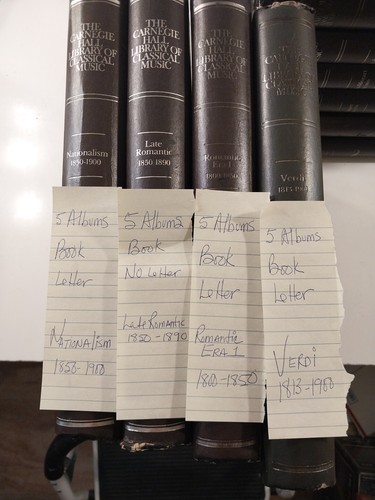 THE
CARNEGIE
HALL
LIBRARY OF
CLASSICAL
MUSIC
Nationalism
1850-1900
5 Albums
Book
Letter
Nationalism
1850-1900
THE
CARNEGIE
HALL
LIBRARY OF
CLASSICAL
MUSIC
Late
Romantic
1850-1890
5 Albums
Book
No Letter
Late Romantic
1850-1890
THE
CARNEGIE
HALL
LIBRARY OF
CLASSICAL
MUSIC
Romantic
Era I
1800-1850
5 Albums
Book
Letter
Romantic
ERA 1
1800-1850
THE
CARNEGIE
HALL
LIBRARY OF
CLASSICAL
MUSIC
Verdi
1813-1900
5 Albums
Book
Letter
VERDI
1813-1900